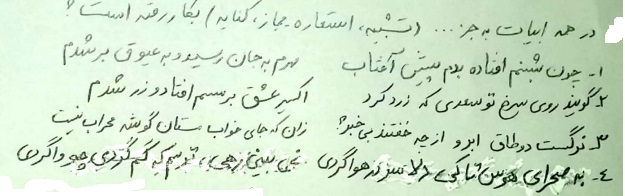 در همه ابیات به جز .... (تشبیه، استعاره، مجاز، کنایه) بکار رفته است؟
۱- چون شبنم افتاده بدم پیش آفتاب مهرم به جان رسید و به عیوق بر شدم
۲- گویند روی سرخ تو سعدی که زرد کرد اکسیر عشق بر مسم افتاد و زر شدم
۳- نرگست در طاق ابرو از چه خفتند بی خبر؟ زان که جای خواب مستان گوشه محراب نیست
۴- به صحرای هوس تا کی دلا سر در هوا گردی نمی بینی رهی، ترسم که گم گردی چو وا گردی